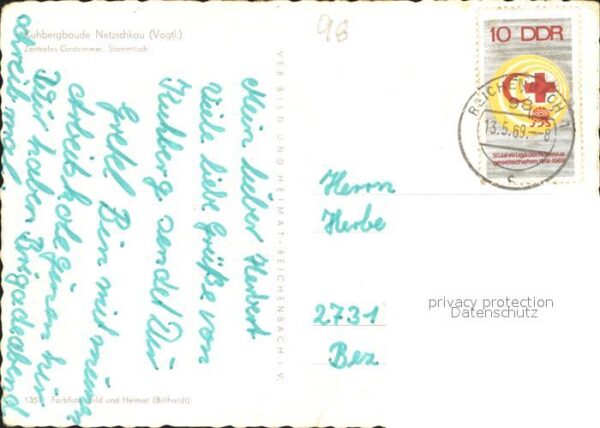 Kuhbergbaude Netzschkau (Vogtl.)
Zentrales Gastzimmer, Stammtisch
98
10 DDR
50 Jahre Liga der Rotkreuz-
gesellschaften 1919-1969
REICHENBACH
98
13.5.69.-8
c
VEB BILD UND HEIMAT · REICHENBACH I.V.
Mein lieber Herbert
Viele liebe Grüße von
Kuhberg sendet Dir
Gretel Bin mit meinen
Arbeitskolleginnen hir
Wir haben Brigadeabend
schreib mal
Herrn
Herbe
2731
Bez
privacy protection
Datenschutz
135 Farbfoto: Bild und Heimat (Billhardt)